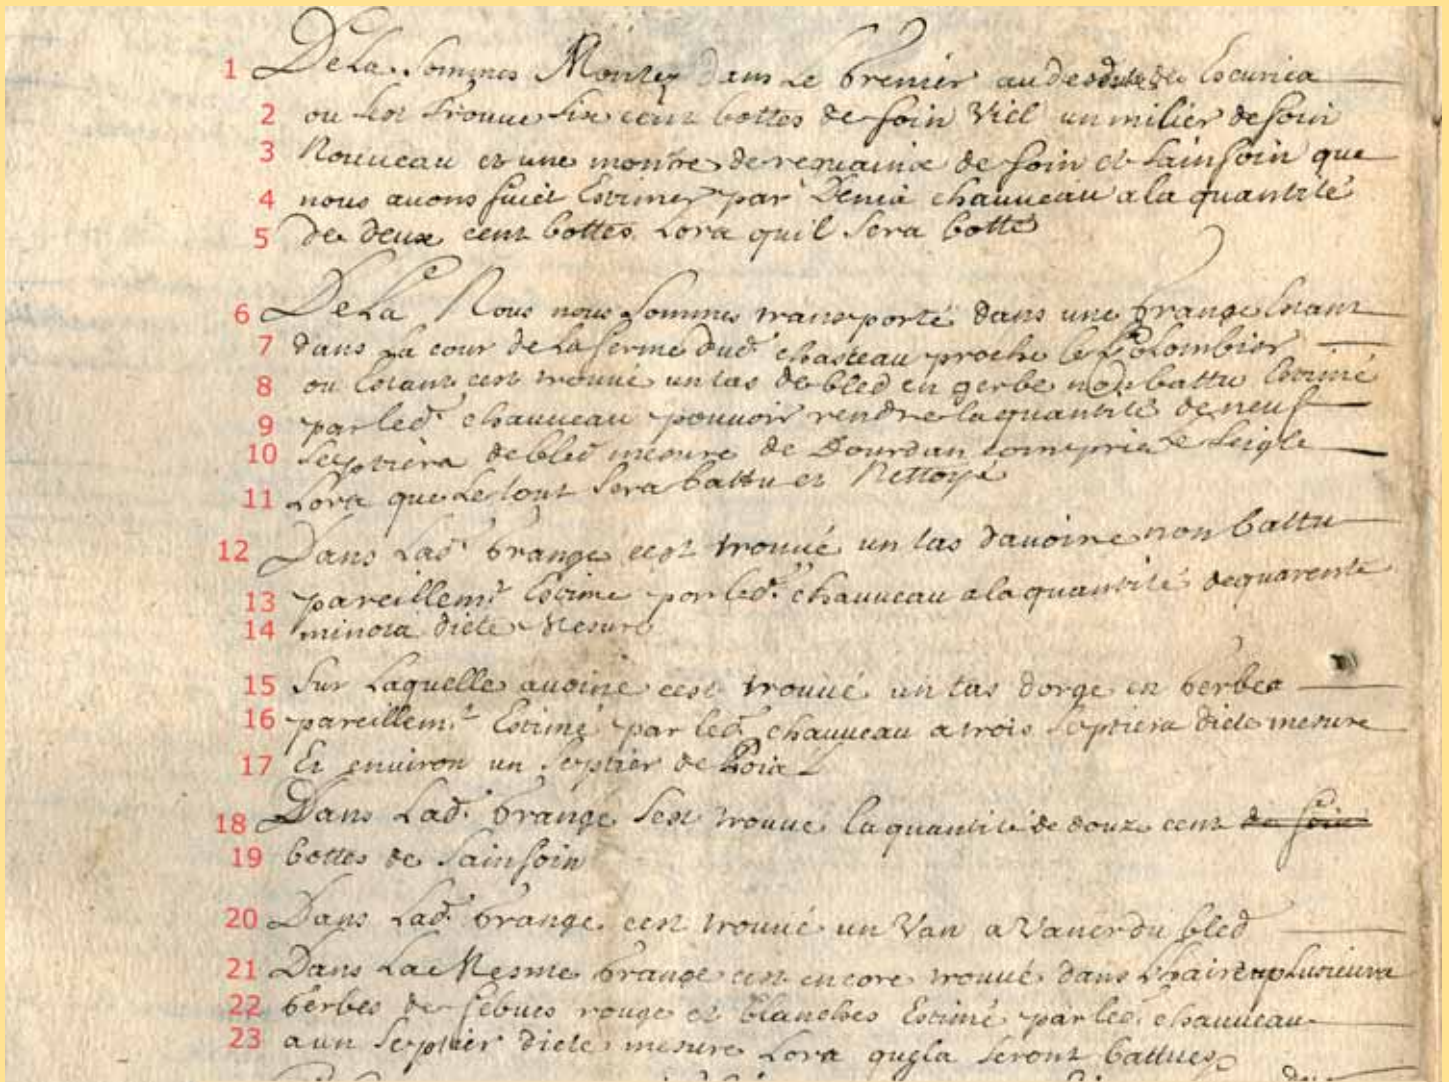 1 De La Sommes Montez dans Le Grenier au dessus des Escuries
2 ou Sest Trouvé Six cent bottes de foin Viel un milier de foin
3 Nouveau et une montre de remaine de foin et Sainfoin que
4 nous avons faict Estimer par Denis chauveau a la quantité
5 de deux cent bottes Lors quil Sera botté
6 De La Nous nous Sommes transporté dans une Grange Estant
7 dans La cour de La ferme dud. chasteau proche le Colombier
8 ou Estant cest trouvé un tas de bled en gerbe non battu Estimé
9 par led. chauveau pouvoir rendre la quantité de neuf
10 Septiers de bled mesure de Dourdan compris Le Seigle
11 Lors que Le tout Sera battu et Nettoyé
12 Dans Lad. Grange cest trouvé un tas davoine non battu
13 pareillemt. Estimé par led. chauveau a la quantité de quarente
14 minots dicte Mesure
15 Sur Laquelle avoine cest trouvé un tas dorge en Gerbes
16 pareillemt. Estimé par led. chauveau a trois Septiers dicte mesure
17 Et environ un Septier de Pois
18 Dans Lad. Grange Sest trouvé la quantité de douze cent de foin
19 bottes de Sainfoin
20 Dans Lad. Grange cest trouvé un Van a Vaner du bled
21 Dans La Mesme Grange cest encore trouvé dans Lhaire plusieurs
22 Gerbes de febues rouge et blanches Estimé par led. chauveau
23 a un Septier dicte mesure Lors quyls Seront battues